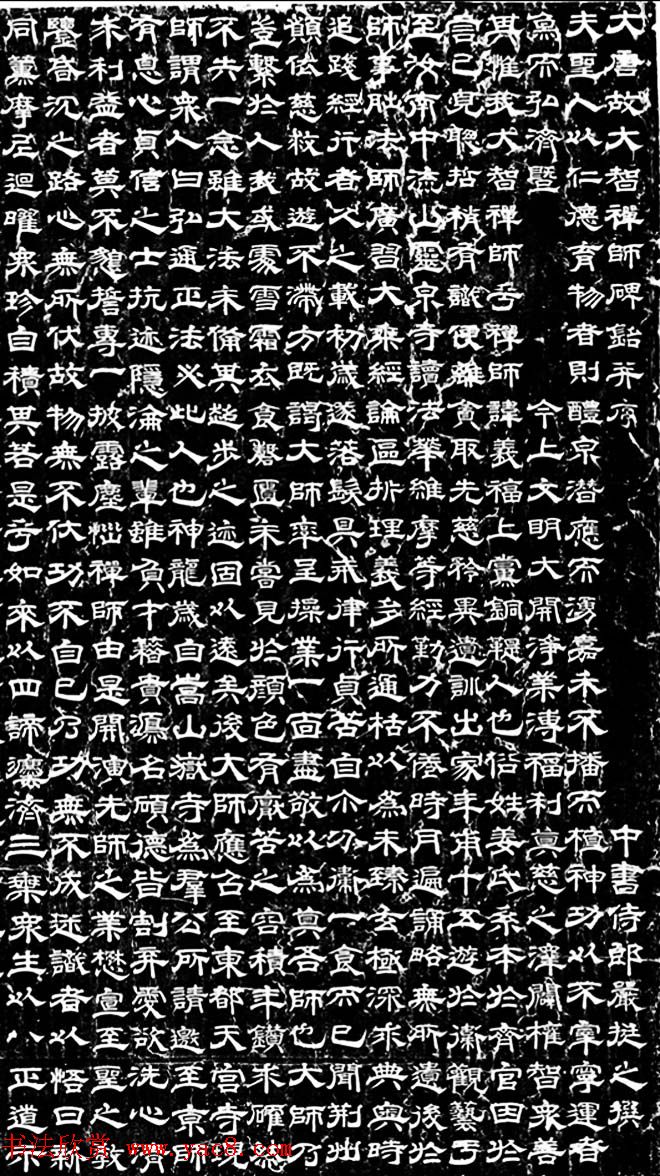 大唐故大智禪師碑銘并序 中書侍郎嚴挺之撰
夫聖人以仁德育物者則醴泉潜應而湧嘉禾不播而植神功以不宰寧運者
為而弘濟暨 今上文明大開淨業溥福利真慈之澤闡權智衆善
畢惟我大智禪師乎禪師諱義福上黨銅鞮人也俗姓姜氏系本於齊官因於
言已見聰哲稍有識便離貪取先慈矜異遺訓出家年甫十五遊於衛觀藝於
至汝南中流山靈泉寺讀法華維摩等經勤力不倦時月遍誦略無所遺後於
師事朏法師廣習大乘經論區析理義多所通括以為未臻玄極深求典奧時
追踐經行者久之載初歲遂落髮具戒律行貞苦自分衛一食而已聞荆州
願依慈救故遊不滯方既謁大師率呈操業一面盡敬以為真吾師也大師乃
豈繫於人我或處雪霜衣食罄匱未嘗見於顏色有厭苦之容積年鑽求確然
不失一念雖大法未備其超步之迹固以遠矣後大師應召至東都天宮寺現
師謂衆人曰弘通正法必此人也神龍歲自嵩山嶽寺為羣公所請邀至京師
有息心貞信之士抗迹隱淪之輩雖負才藉貴鴻名碩德皆割弃愛欲洗心齊
求利益者莫不懇誓專一披露塵惱禪師由是開演先師之業懋宣至聖之教
鑒昏沉之路心無所伏故物無不伏功不自已乃功無不成迷識者以悟日新
同薰摩尼迴曜衆珍自積畢若是乎如來以四諦濟三乘衆生以八正道示
书法欣赏 www.yac8.com